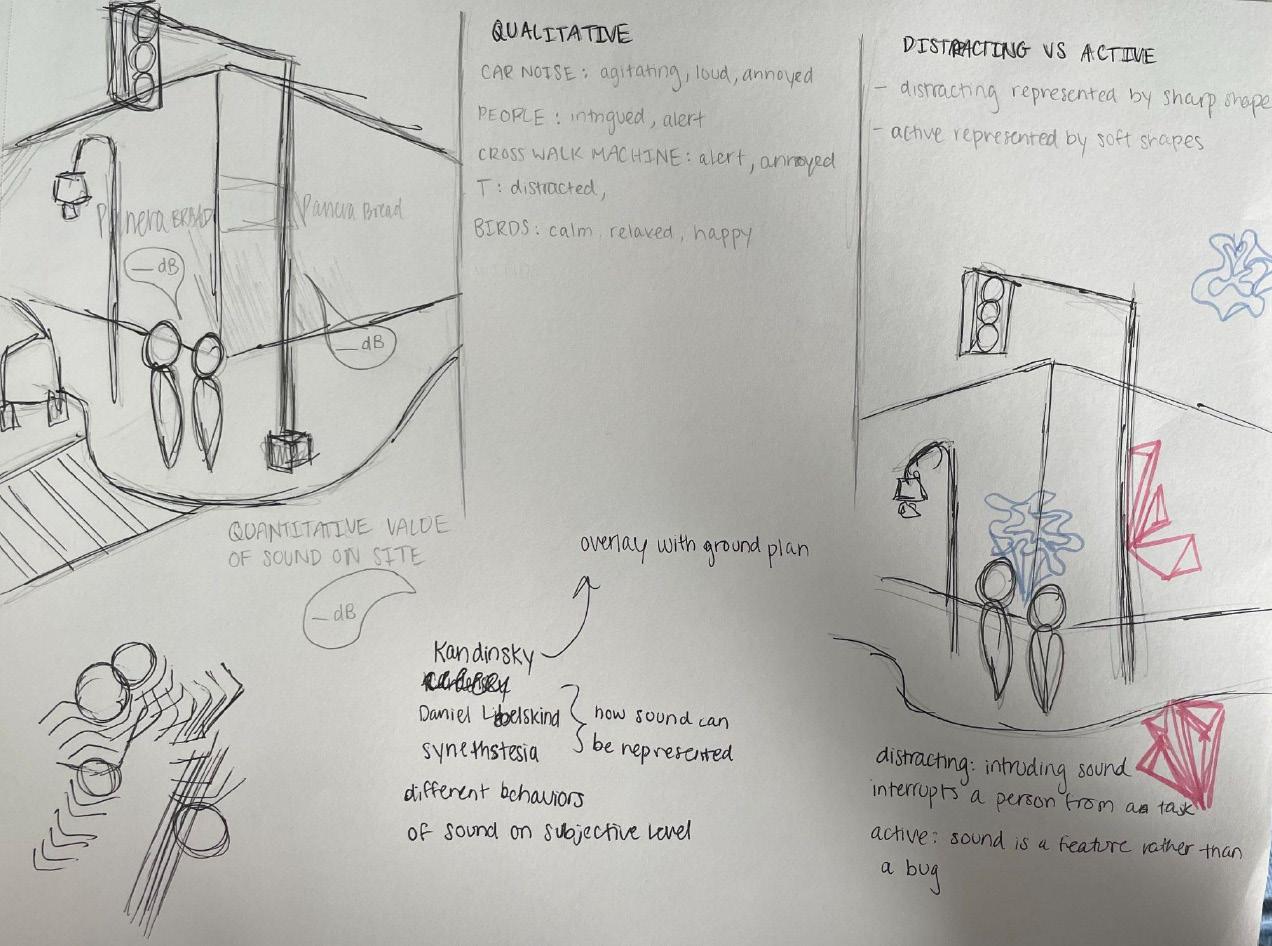 Panera BREAD
Panera Bread
— dB
— dB
QUANTITATIVE VALUE
OF SOUND ON SITE
— dB
QUALITATIVE
CAR NOISE: agitating, loud, annoyed
PEOPLE: intrigued, alert
CROSS WALK MACHINE: alert, annoyed
T: distracted,
BIRDS: calm, relaxed, happy
overlay with ground plan
Kandinsky
Daniel Libelskind
synethstesia
how sound can
be represented
different behaviors
of sound on subjective level
DISTRACTING VS ACTIVE
- distracting represented by sharp shape
- active represented by soft shapes
distracting: intruding sound
interrupts a person from a task
active: sound is a feature rather than
a bug